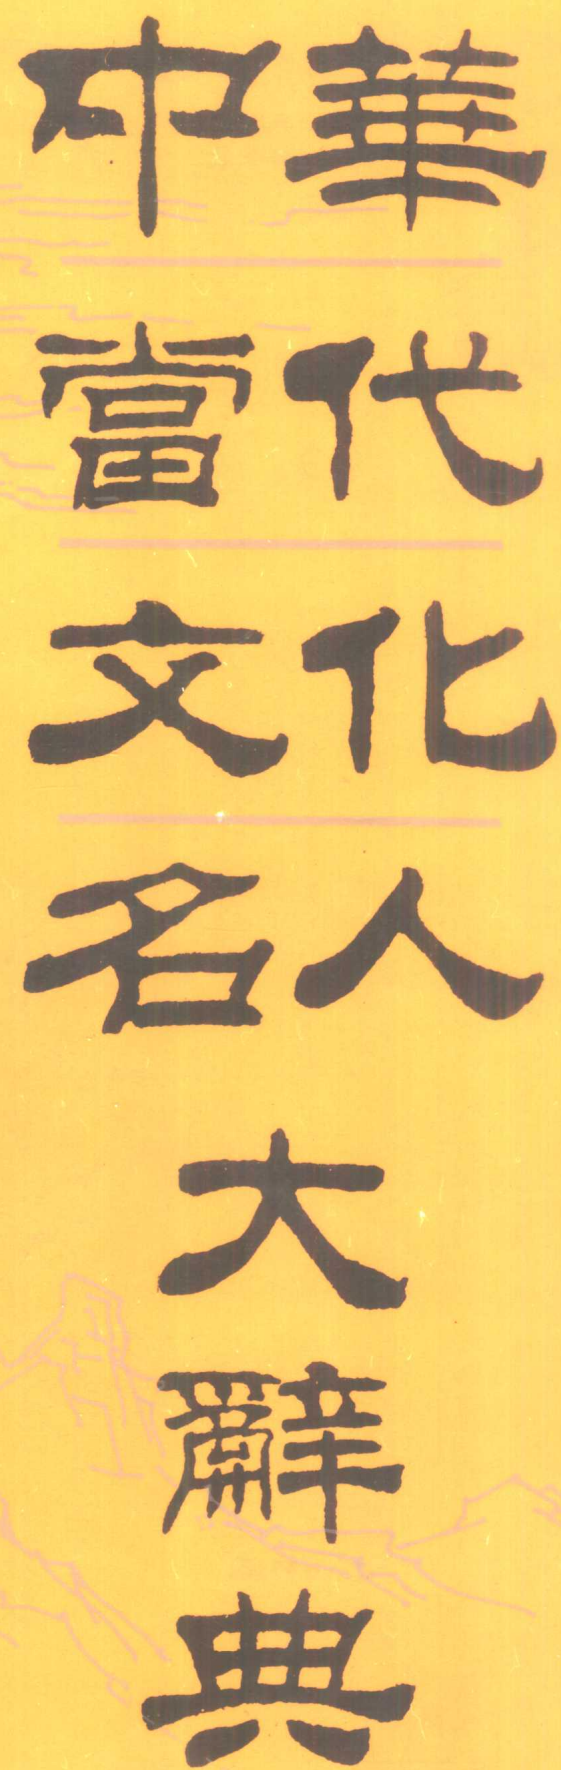 中華
當代
文化
名人
大
辭
典